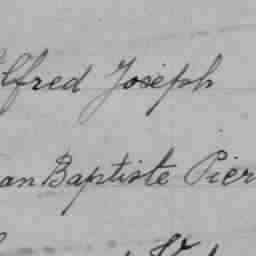 lfred Joseph
an Baptiste Pier